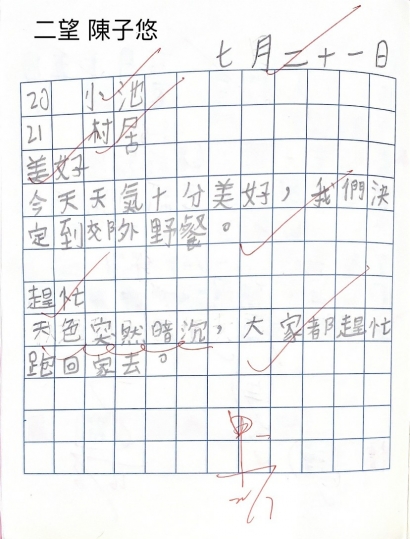 二望 陳子悠
七月二十一日
20 小池
21 村居
美好
今天天氣十分美好，我們決
定到郊外野餐。
趕忙
天色突然暗沉，大家都趕忙
跑回家去。